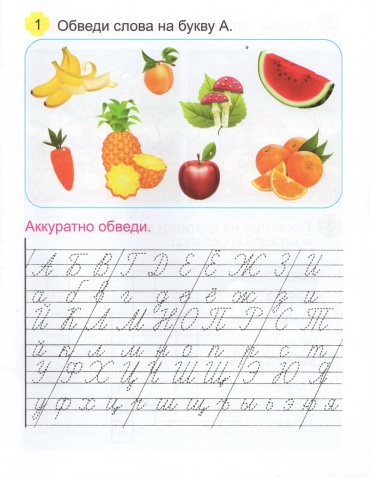 1 Обведи слова на букву А.
Аккуратно обведи.
А Б В Г Д Е Ё Ж З И
а б в г д е ё ж з и
Й К Л М Н О П Р С Т
й к л м н о п р с т
У Ф Х Ц Ч Ш Щ Э Ю Я
у ф х ц ч ш щ ъ ы ь э ю я